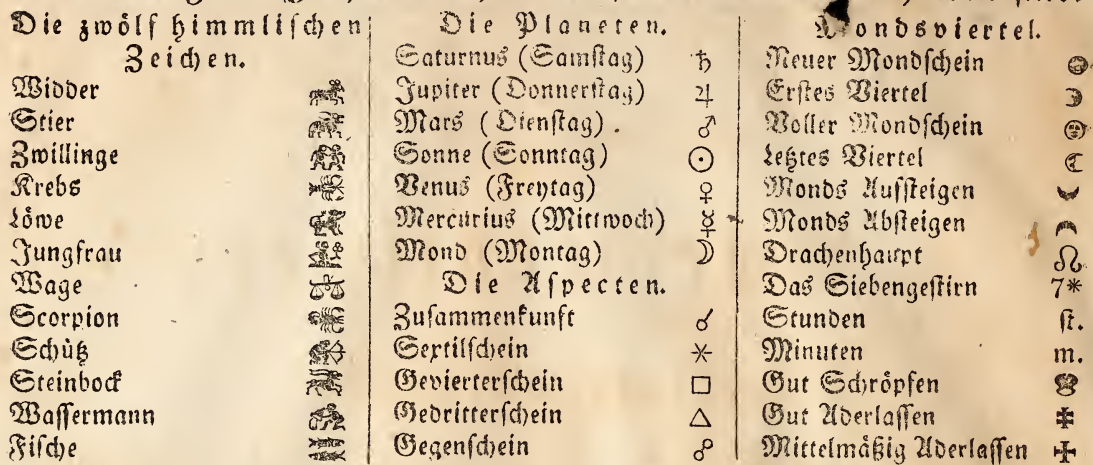 Die zwölf himmlischen
Zeichen.
Widder
Stier
Zwillinge
Krebs
Löwe
Jungfrau
Wage
Scorpion
Schütz
Steinbock
Wassermann
Fische
Die Planeten.
Saturnus (Samstag) ♄
Jupiter (Donnerstag) ♃
Mars (Dienstag) . ♂
Sonne (Sonntag) ☉
Venus (Freytag) ♀
Mercurius (Mittwoch) ☿
Mond (Montag) ☽
Die Aspecten.
Zusammenkunft ☌
Sextilschein ⚹
Gevierterschein □
Gedritterschein △
Gegenschein ☍
Mondsviertel.
Neuer Mondschein
Erstes Viertel ☽
Voller Mondschein
Letztes Viertel ☾
Monds Aufsteigen
Monds Absteigen
Drachenhaupt ☊
Das Siebengestirn 7*
Stunden st.
Minuten m.
Gut Schröpfen
Gut Aderlassen
Mittelmäßig Aderlassen